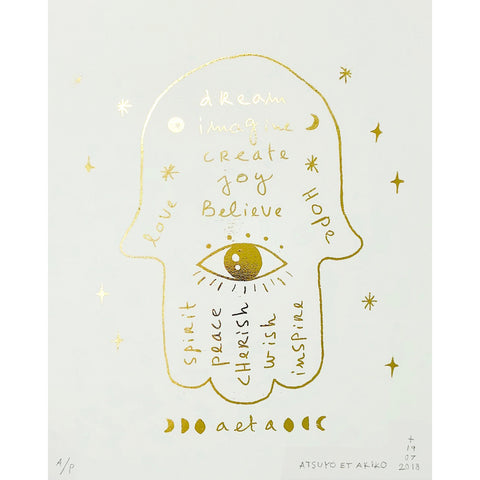 dream
imagine
create
joy
Believe
love
Hope
spirit
peace
CHERISH
wish
inspire
aeta
A/P
ATSUYO ET AKIKO
19
07
2018